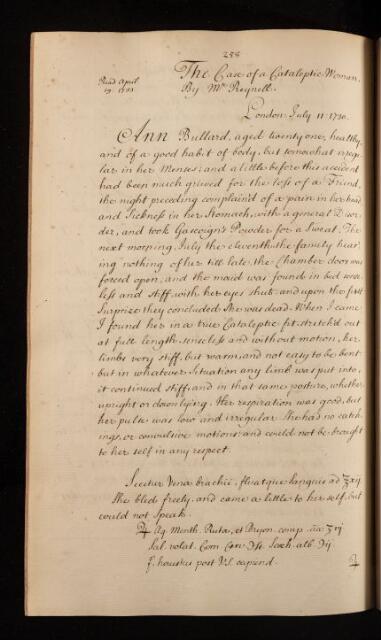 258
The Case of a Cataleptic Woman.
Read April
By Mr Reynell.
London July 11 1730.
Ann Bullard, aged twenty one, healthy
and of a good habit of body, but somewhat irregu
lar in her Menses; and a little before this accident
had been much grieved for the loss of a Friend,
the night preceding complain'd of a pain in her head
and Sickness in her Stomach, with a general Disor
der, and took Gascoign's Powder for a Sweat. The
next morning July the eleventh the family hear
ing nothing of her till late, the Chamber door was
forced open, and the maid was found in bed sense
less and stiff, with her eyes shut: and upon the first
Surprize they concluded She was dead. When I came
I found her in a true Cataleptic fit, stretch'd out
at full length, senseless and without motion, her
limbs very stiff, but warm, and not easy to be bent
but in whatever Situation any limb was put into,
it continued stiff, and in that same posture, whether
upright or down lying. Her respiration was good, but
her pulse was low and irregular. She had no catch
ings, or convulsive motions and could not be brought
to her self in any respect.
Secetur Vena brachii, fluatque sanguis ad ℥xij
She bled freely, and came a little to her self, but
could not speak.
℞ Aq Menth. Rutæ, et Bryon. comp. āā ℥
Sal. volat. Corn. Cerv. Sach. alb. ʒij
f. haustus post V.S. capiend.